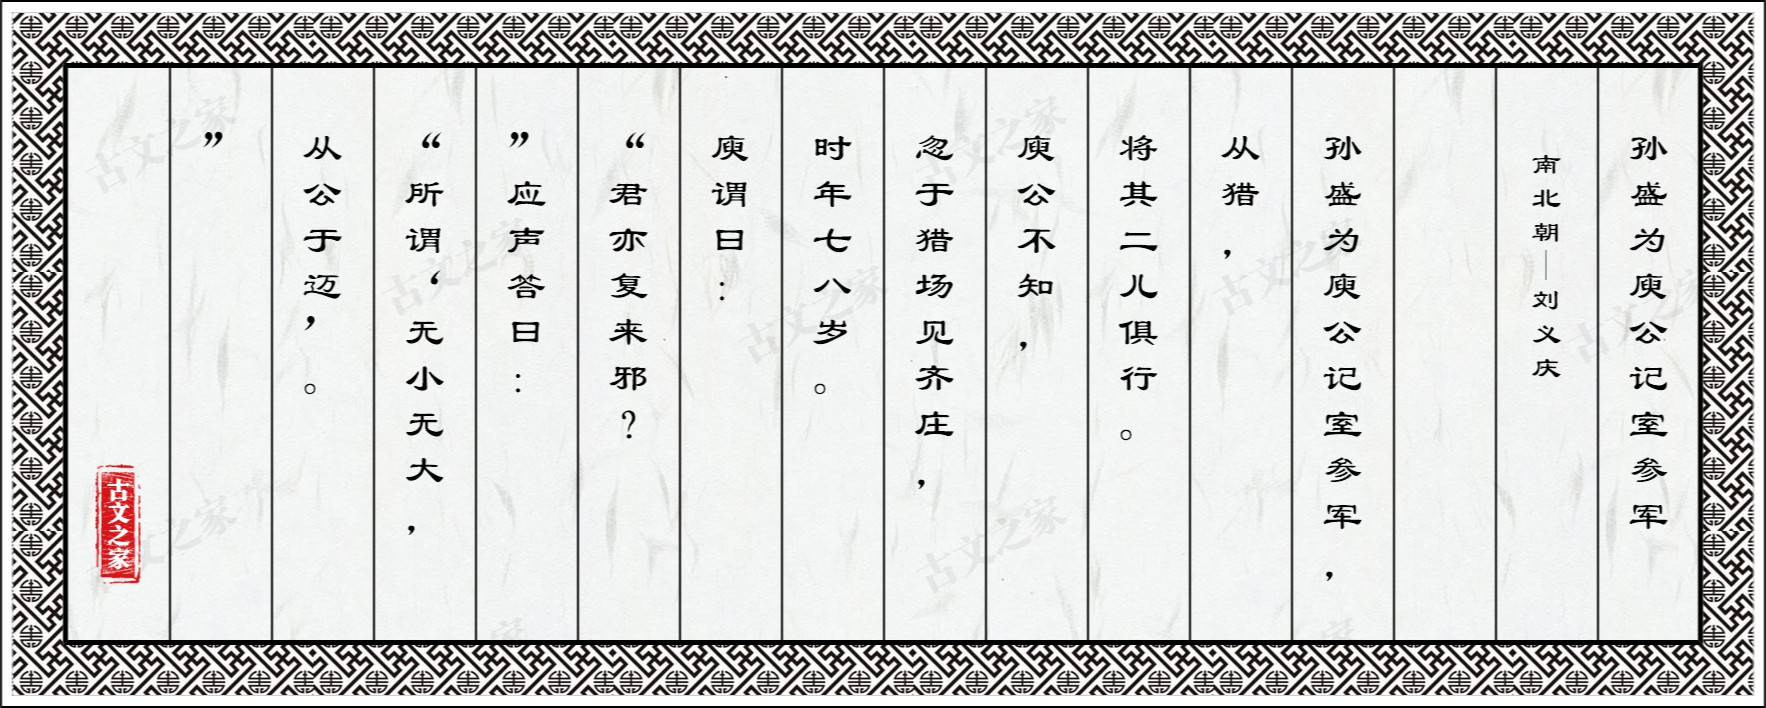 孙盛为庾公记室参军
南北朝—刘义庆
孙盛为庾公记室参军，
从猎，
将其二儿俱行。
庾公不知，
忽于猎场见齐庄，
时年七八岁。
庾谓曰：
“君亦复来邪？
”应声答曰：
“所谓‘无小无大，
从公于迈’。
”
古文之家